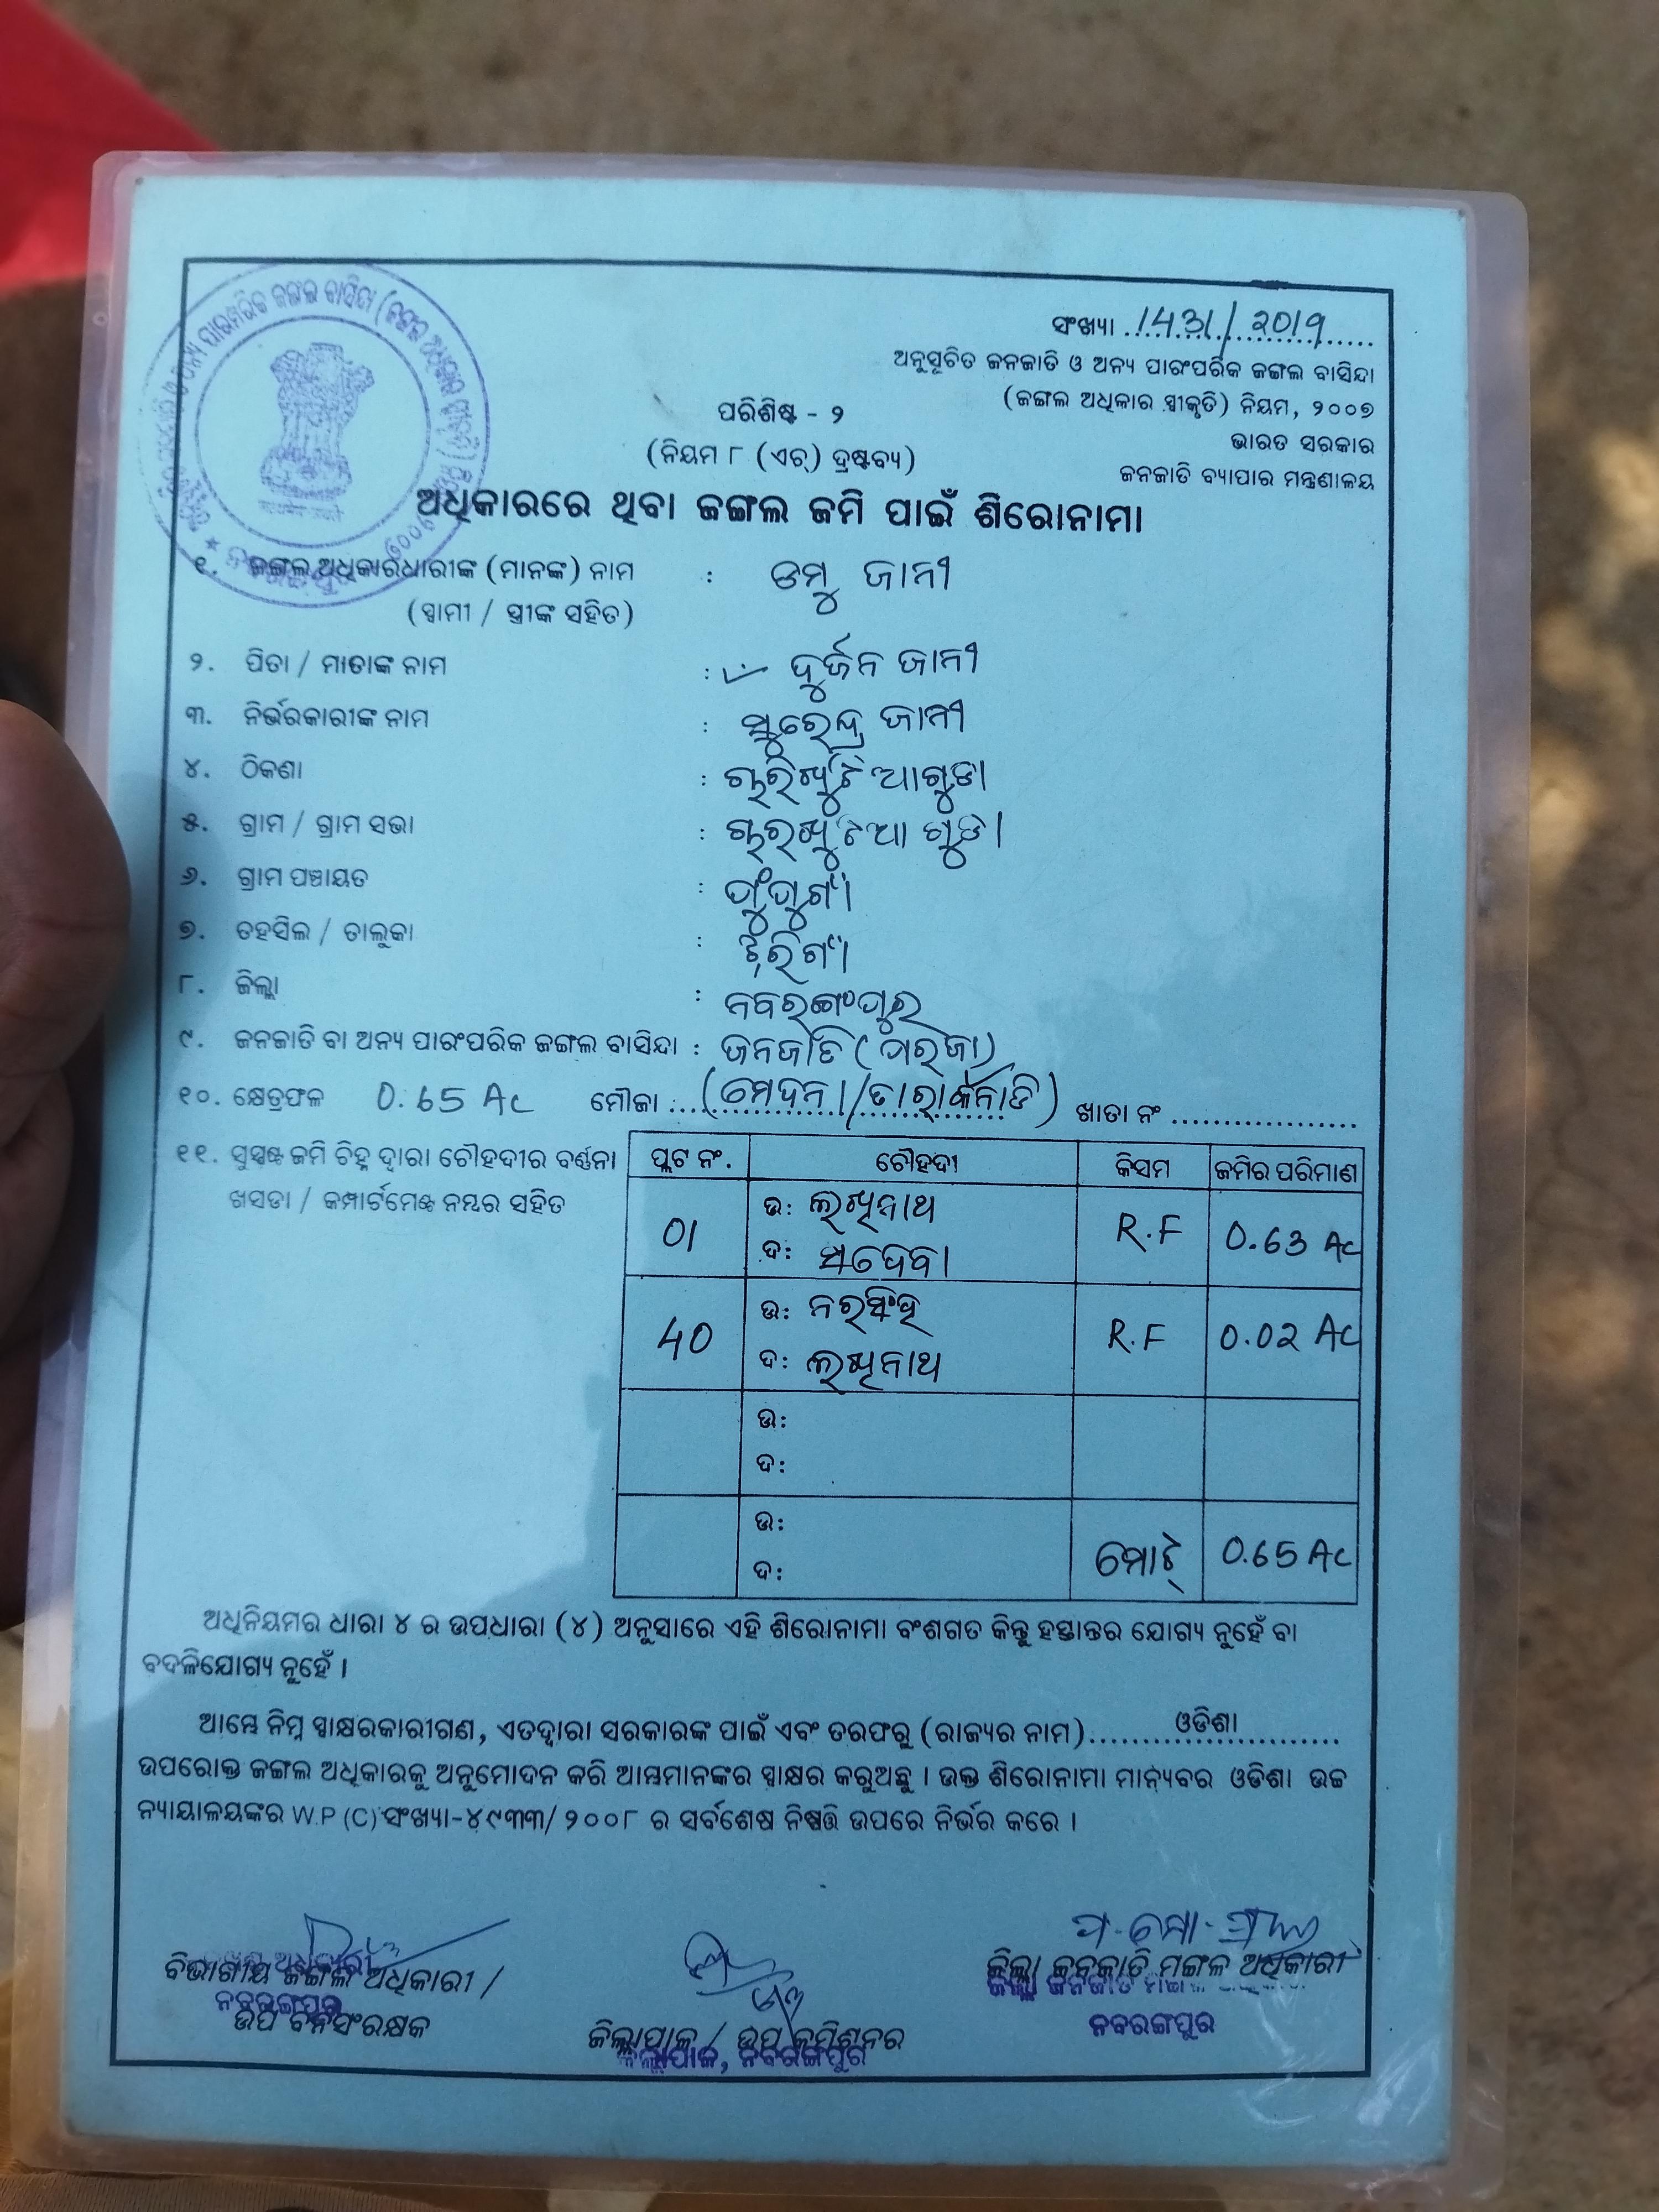 ସଂଖ୍ୟା 1431/2019
ଅନୁସୂଚିତ ଜନଜାତି ଓ ଅନ୍ୟ ପାରଂପରିକ ଜଙ୍ଗଲ ବାସିନ୍ଦା
(ଜଙ୍ଗଲ ଅଧିକାର ସ୍ୱୀକୃତି) ନିୟମ, ୨୦୦୭
ଭାରତ ସରକାର
ଜନଜାତି ବ୍ୟାପାର ମନ୍ତ୍ରଣାଳୟ
ପରିଶିଷ୍ଟ - ୨
(ନିୟମ ୮ (ଏଚ୍) ଦ୍ରଷ୍ଟବ୍ୟ)
ଅଧିକାରରେ ଥିବା ଜଙ୍ଗଲ ଜମି ପାଇଁ ଶିରୋନାମା
୧. ଜଙ୍ଗଲ ଅଧିକାରଧାରୀଙ୍କ (ମାନଙ୍କ) ନାମ : ଡମ୍ବୁ ଜାନୀ
(ସ୍ୱାମୀ / ସ୍ତ୍ରୀଙ୍କ ସହିତ)
୨. ପିତା / ମାତାଙ୍କ ନାମ : ଦୁର୍ଜନ ଜାନୀ
୩. ନିର୍ଭରକାରୀଙ୍କ ନାମ : ସୁରେନ୍ଦ୍ର ଜାନୀ
୪. ଠିକଣା :
୫. ଗ୍ରାମ / ଗ୍ରାମ ସଭା :
୬. ଗ୍ରାମ ପଞ୍ଚାୟତ : ପୁପୁଗାଁ
୭. ତହସିଲ / ତାଲୁକା : ଝରିଗାଁ
୮. ଜିଲ୍ଲା : ନବରଙ୍ଗପୁର
୯. ଜନଜାତି ବା ଅନ୍ୟ ପାରଂପରିକ ଜଙ୍ଗଲ ବାସିନ୍ଦା : ଜନଜାତି (ପରଜା)
୧୦. କ୍ଷେତ୍ରଫଳ 0.65 Ac ମୌଜା (ମେଦନା/ ଖାତା ନଂ
୧୧. ସୁସ୍ପଷ୍ଟ ଜମି ଚିହ୍ନ ଦ୍ୱାରା ଚୌହଦୀର ବର୍ଣ୍ଣନା
ଖସଡା / କମ୍ପାର୍ଟମେଣ୍ଟ ନମ୍ବର ସହିତ
ପ୍ଲଟ ନଂ. ଚୌହଦୀ କିସମ ଜମିର ପରିମାଣ
01 ଉ: ଲଖିନାଥ R.F 0.63 Ac
ଦ: ସଦେବା
40 ଉ: ନରସିଂହ R.F 0.02 Ac
ଦ: ଲଖିନାଥ
ଉ:
ଦ:
ଉ: ମୋଟ୍ 0.65 Ac
ଦ:
ଅଧିନିୟମର ଧାରା ୪ ର ଉପଧାରା (୪) ଅନୁସାରେ ଏହି ଶିରୋନାମା ବଂଶଗତ କିନ୍ତୁ ହସ୍ତାନ୍ତର ଯୋଗ୍ୟ ନୁହେଁ ବା
ବଦଳିଯୋଗ୍ୟ ନୁହେଁ ।
ଆମ୍ଭେ ନିମ୍ନ ସ୍ୱାକ୍ଷରକାରୀଗଣ, ଏତଦ୍ୱାରା ସରକାରଙ୍କ ପାଇଁ ଏବଂ ତରଫରୁ (ରାଜ୍ୟର ନାମ) ଓଡିଶା
ଉପରୋକ୍ତ ଜଙ୍ଗଲ ଅଧିକାରକୁ ଅନୁମୋଦନ କରି ଆମ୍ଭମାନଙ୍କର ସ୍ୱାକ୍ଷର କରୁଅଛୁ । ଉକ୍ତ ଶିରୋନାମା ମାନ୍ୟବର ଓଡିଶା ଉଚ୍ଚ
ନ୍ୟାୟାଳୟଙ୍କର W.P (C) ସଂଖ୍ୟା-୪୯୩୩/୨୦୦୮ ର ସର୍ବଶେଷ ନିଷ୍ପତ୍ତି ଉପରେ ନିର୍ଭର କରେ ।
ବିଭାଗୀୟ ଜଙ୍ଗଲ ଅଧିକାରୀ /
ନବରଙ୍ଗପୁର
ଉପ ବନସଂରକ୍ଷକ
ଜିଲ୍ଲାପାଳ / ଉପ କମିଶନର
ଜିଲ୍ଲାପାଳ, ନବରଙ୍ଗପୁର
ଜିଲ୍ଲା ଜନଜାତି ମଙ୍ଗଳ ଅଧିକାରୀ
ନବରଙ୍ଗପୁର